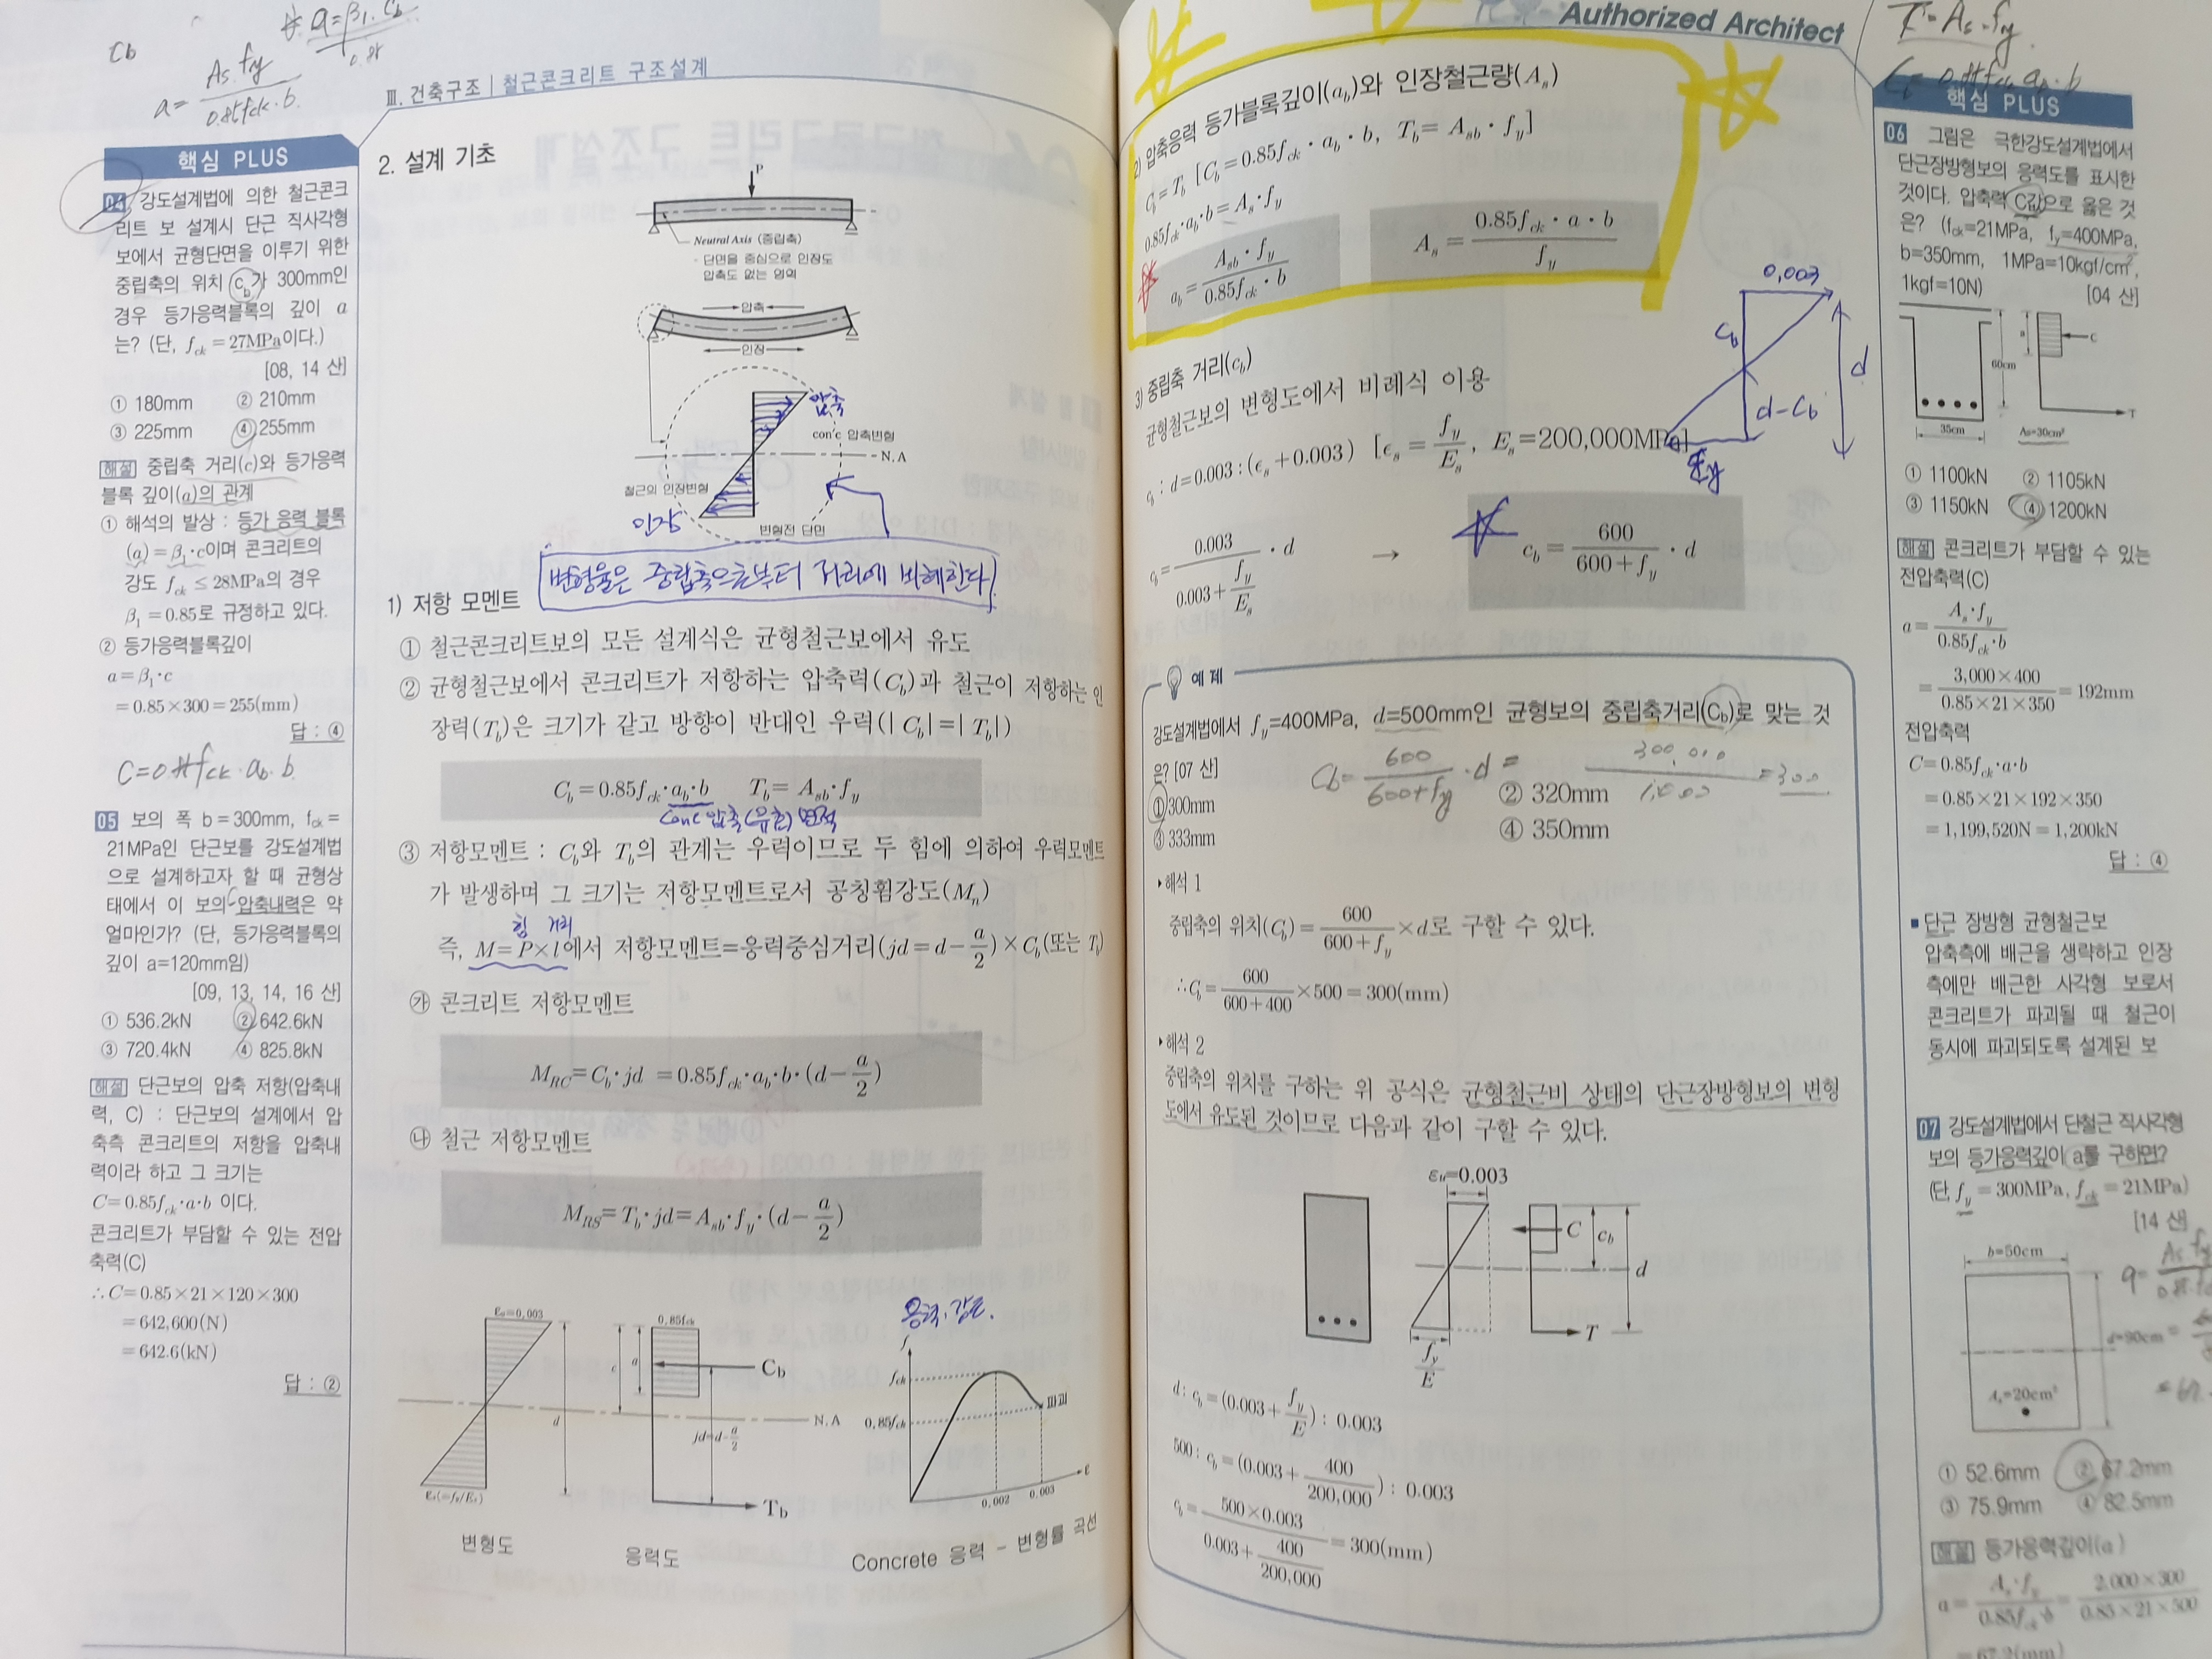 Cb
a = As·fy / 0.85fck·b
a = β1·Cb
III. 건축구조 | 철근콘크리트 구조설계
핵심 PLUS
04 강도설계법에 의한 철근콘크
리트 보 설계시 단근 직사각형
보에서 균형단면을 이루기 위한
중립축의 위치 cb가 300mm인
경우 등가응력블록의 깊이 a
는? (단, fck = 27MPa이다.)
[08, 14 산]
① 180mm ② 210mm
③ 225mm ④ 255mm
해설 중립축 거리(c)와 등가응력
블록 깊이(a)의 관계
① 해석의 발상 : 등가 응력 블록
(a) = β1·c이며 콘크리트의
강도 fck ≤ 28MPa의 경우
β1 = 0.85로 규정하고 있다.
② 등가응력블록깊이
a = β1·c
= 0.85×300 = 255(mm)
답 : ④
C = 0.85fck·ab·b
05 보의 폭 b = 300mm, fck =
21MPa인 단근보를 강도설계법
으로 설계하고자 할 때 균형상
태에서 이 보의 압축내력은 약
얼마인가? (단, 등가응력블록의
깊이 a=120mm임)
[09, 13, 14, 16 산]
① 536.2kN ② 642.6kN
③ 720.4kN ④ 825.8kN
해설 단근보의 압축 저항(압축내
력, C) : 단근보의 설계에서 압
축측 콘크리트의 저항을 압축내
력이라 하고 그 크기는
C = 0.85fck·a·b 이다.
콘크리트가 부담할 수 있는 전압
축력(C)
∴ C = 0.85×21×120×300
= 642,600(N)
= 642.6(kN)
답 : ②
2. 설계 기초
P
Neutral Axis (중립축)
- 단면을 중심으로 인장도
압축도 없는 영역
압축
인장
압축
con'c 압축변형
N.A
철근의 인장변형
인장
변형전 단면
변형율은 중립축으로부터 거리에 비례한다.
1) 저항 모멘트
① 철근콘크리트보의 모든 설계식은 균형철근보에서 유도
② 균형철근보에서 콘크리트가 저항하는 압축력(Cb)과 철근이 저항하는 인
장력(Tb)은 크기가 같고 방향이 반대인 우력(| Cb | = | Tb |)
Cb = 0.85fck·ab·b Tb = Asb·fy
conc 압축(유효) 면적
③ 저항모멘트 : Cb와 Tb의 관계는 우력이므로 두 힘에 의하여 우력모멘트
가 발생하며 그 크기는 저항모멘트로서 공칭휨강도(Mn)
힘 거리
즉, M = P×l에서 저항모멘트=응력중심거리(jd = d - a/2) × Cb(또는 Tb)
㉮ 콘크리트 저항모멘트
MRC = Cb·jd = 0.85fck·ab·b·(d - a/2)
㉯ 철근 저항모멘트
MRS = Tb·jd = Asb·fy·(d - a/2)
응력.강도.
εu=0.003
d
εs(=fy/Es)
변형도
0.85fck
c
a
Cb
N.A
jd=d-a/2
Tb
응력도
f
fck
0.85fck
파괴
0.002 0.003 ε
Concrete 응력 - 변형률 곡선
Authorized Architect
2) 압축응력 등가블록깊이(ab)와 인장철근량(As)
Cb = Tb [Cb = 0.85fck·ab·b, Tb = Asb·fy]
0.85fck·ab·b = As·fy
ab = Asb·fy / 0.85fck·b
As = 0.85fck·a·b / fy
3) 중립축 거리(cb)
균형철근보의 변형도에서 비례식 이용
cb : d = 0.003 : (εs + 0.003) [εs = fy/Es, Es = 200,000MPa]
0.003
Cb
d
d-Cb
εy
cb = 0.003 / (0.003 + fy/Es) · d → cb = 600 / (600 + fy) · d
예제
강도설계법에서 fy=400MPa, d=500mm인 균형보의 중립축거리(Cb)로 맞는 것
은? [07 산]
Cb = 600 / (600+fy) · d = 300,000 / 1,000 = 300
① 300mm ② 320mm
③ 333mm ④ 350mm
▸해석 1
중립축의 위치(Cb) = 600 / (600 + fy) × d로 구할 수 있다.
∴ Cb = 600 / (600 + 400) × 500 = 300(mm)
▸해석 2
중립축의 위치를 구하는 위 공식은 균형철근비 상태의 단근장방형보의 변형
도에서 유도된 것이므로 다음과 같이 구할 수 있다.
εu=0.003
C
cb
d
T
fy/E
d : cb = (0.003 + fy/E) : 0.003
500 : cb = (0.003 + 400/200,000) : 0.003
cb = 500×0.003 / (0.003 + 400/200,000) = 300(mm)
T = As·fy
핵심 PLUS
06 그림은 극한강도설계법에서
단근장방형보의 응력도를 표시한
것이다. 압축력 C값으로 옳은 것
은? (fck=21MPa, fy=400MPa,
b=350mm, 1MPa=10kgf/cm²,
1kgf=10N) [04 산]
a
C
60cm
T
35cm
As=30cm²
① 1100kN ② 1105kN
③ 1150kN ④ 1200kN
해설 콘크리트가 부담할 수 있는
전압축력(C)
a = As·fy / 0.85fck·b
= 3,000×400 / 0.85×21×350 = 192mm
전압축력
C = 0.85fck·a·b
= 0.85×21×192×350
= 1,199,520N = 1,200kN
답 : ④
■ 단근 장방형 균형철근보
압축측에 배근을 생략하고 인장
측에만 배근한 사각형 보로서
콘크리트가 파괴될 때 철근이
동시에 파괴되도록 설계된 보
07 강도설계법에서 단철근 직사각형
보의 등가응력깊이 a를 구하면?
(단, fy = 300MPa, fck = 21MPa)
[14 산]
b=50cm
d=90cm
As=20cm²
① 52.6mm ② 67.2mm
③ 75.9mm ④ 82.5mm
해설 등가응력깊이(a)
a = As·fy / 0.85fck·b = 2,000×300 / 0.85×21×500
= 67.2(mm)